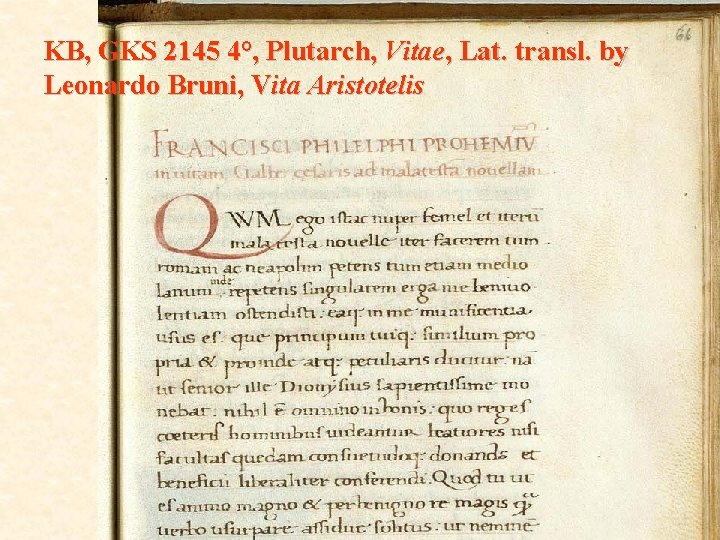 KB, GKS 2145 4°, Plutarch, Vitae, Lat. transl. by
Leonardo Bruni, Vita Aristotelis
66
FRANCISCI PHILELPHI PROHEMIV̄
in uitam, Galbe cesaris ad malatestā nouellam.
QWM ego istac nuper semel et iterū
malatesta nouelle iter facerem tum
romam ac neapolim petens tum etiam medio
lanum inde repetens singularem erga me beniuo
lentiam ostendisti: eaq: in me munificentia
usus es. que principum tuiq: similium pro
pria & proinde atq: peculiaris ducitur. nā
ut senior ille Dionysius sapientissime mo
nebat: nihil ē omnino in bonis: quo reges
coeteris hominibus uideantur beatiores nisi
facultas quedam consuetudoq: donandis et
beneficii liberaliter conferendi. Quod tu ut
es animo magno & perbenigno re magis q̄
uerbo usurpare assidue solitus: ut neminē